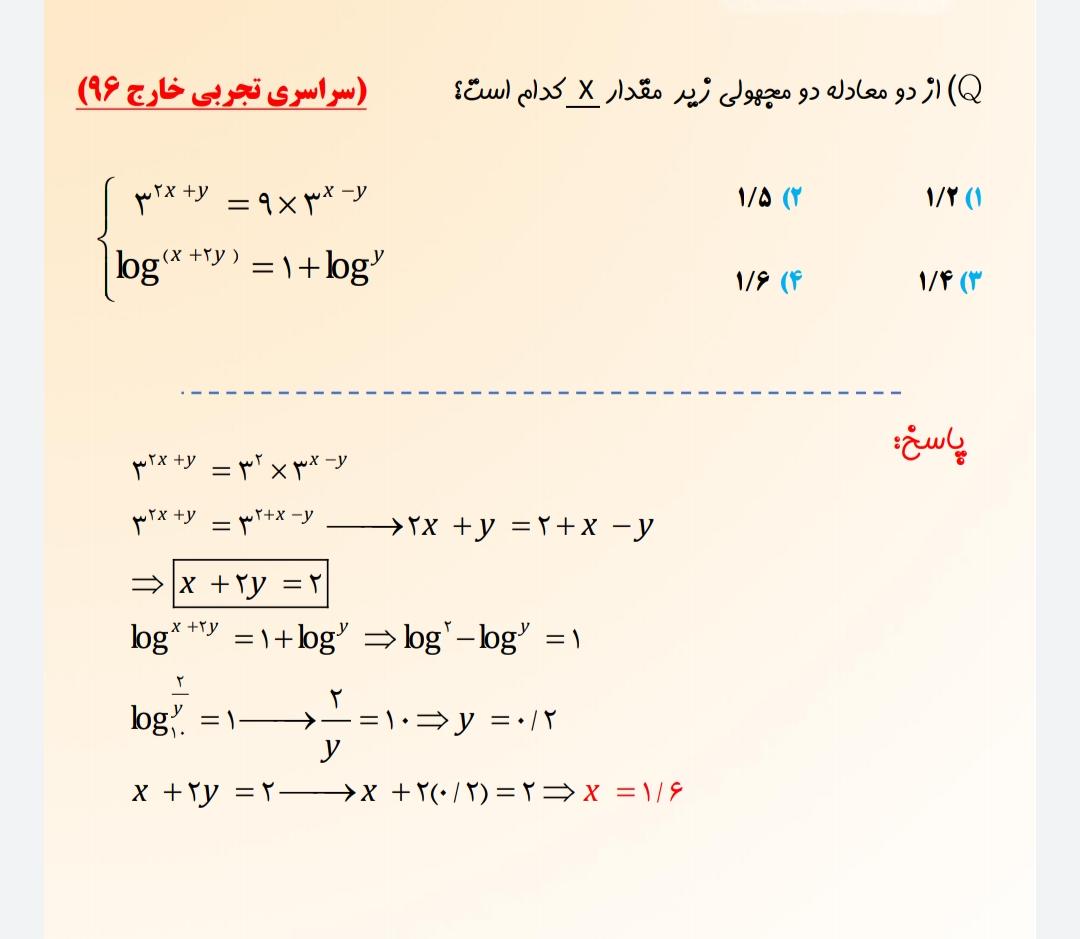 Q) از دو معادله دو مجهولی زیر مقدار X کدام است؟ (سراسری تجربی خارج ۹۶)
۳^{۲x+y} = ۹×۳^{x−y}
log^{(x+۲y)} = ۱+log^{y}
۱) ۱/۲ ۲) ۱/۵
۳) ۱/۴ ۴) ۱/۶
پاسخ:
۳^{۲x+y} = ۳^{۲}×۳^{x−y}
۳^{۲x+y} = ۳^{۲+x−y} ⟶ ۲x+y=۲+x−y
⇒ x+۲y=۲
log^{x+۲y} = ۱+log^{y} ⇒ log^{۲}−log^{y} = ۱
log_{۱۰}^{۲/y} = ۱ ⟶ ۲/y = ۱۰ ⇒ y = ۰/۲
x+۲y=۲ ⟶ x+۲(۰/۲)=۲ ⇒ x=۱/۶